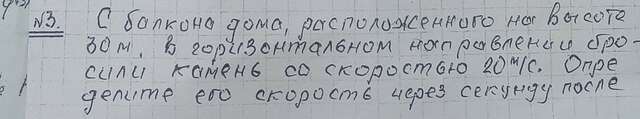 №3. С балкона дома, расположенного на высоте
30 м, в горизонтальном направлении бро-
сили камень со скоростью 20 м/с. Опре
делите его скорость через секунду после